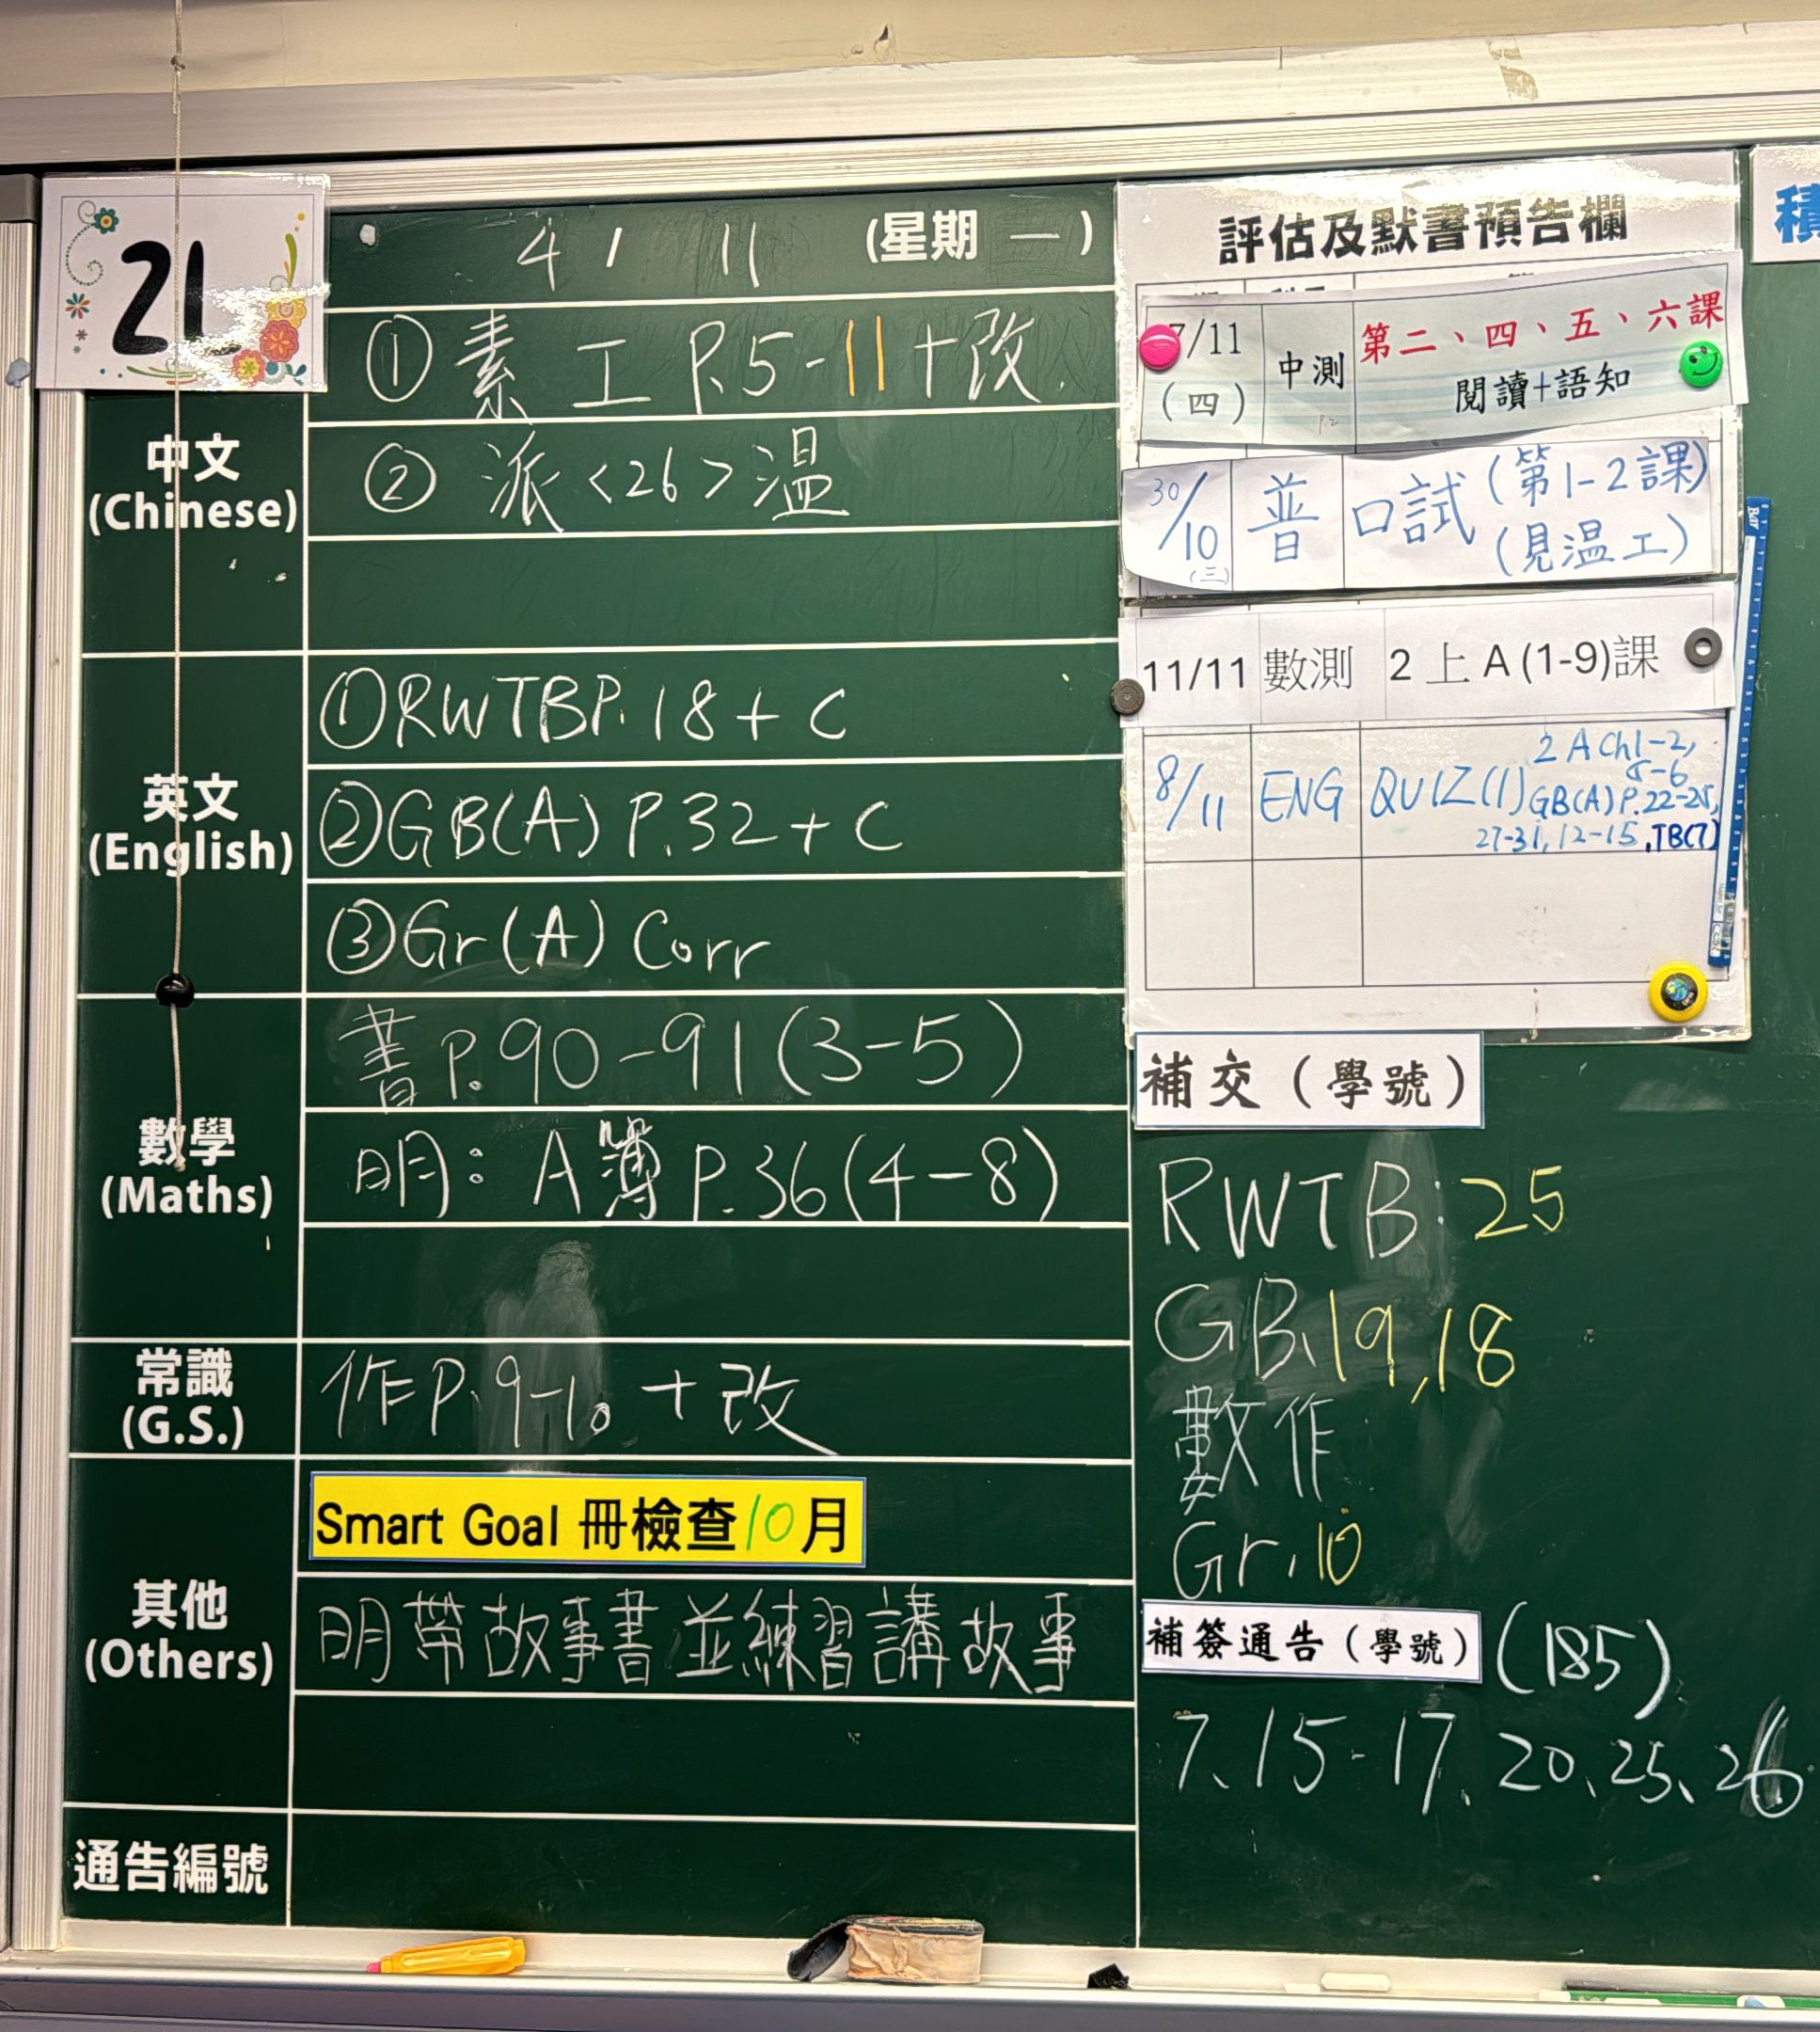 2L
4 / 11 (星期 一 )
中文
(Chinese)
① 素 工 P.5-11+改.
② 派<26>温
英文
(English)
①RWTBP.18+C
②GB(A) P.32+C
③Gr(A) Corr
數學
(Maths)
書P.90-91(3-5)
明: A簿P.36(4-8)
常識
(G.S.)
作P.9-10 +改
其他
(Others)
Smart Goal 冊檢查10月
明帶故事書並練習講故事
通告編號
評估及默書預告欄
7/11
(四)
中測
第二、四、五、六課
閱讀+語知
30/10
(三)
普
口試(第1-2課)
(見温工)
11/11 數測 2上A(1-9)課
8/11 ENG QUIZ(1)
2A Ch1-2,
5-6
GB(A) P.22-25,
27-31,12-15,TB(7)
補交(學號)
RWTB:25
GB、19,18
數作
Gr、10
補簽通告(學號) (185)
7、15-17、20、25、26
積